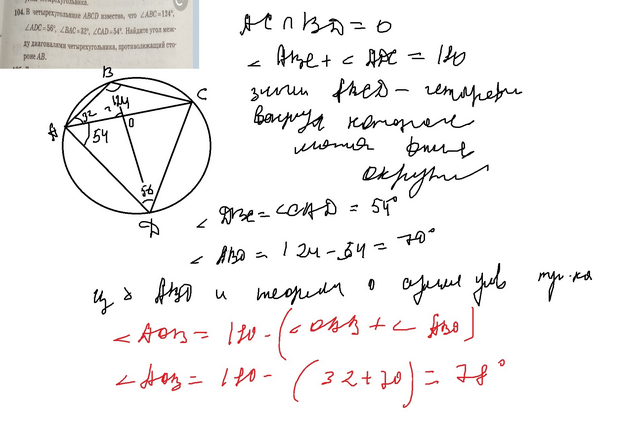 104. В четырехугольнике ABCD известно, что ∠ABC=124°,
∠ADC=56°, ∠BAC=32°, ∠CAD=54°. Найдите угол меж-
ду диагоналями четырехугольника, противолежащий сто-
роне AB.
AC ∩ BD = O
∠ ABC + ∠ ADC = 180
значит ABCD - четырех
вокруг которого
можно
окружн
B
C
A
32
124
O
54
56
D
∠ DBC = ∠CAD = 54°
∠ ABO = 124 - 54 = 70°
из Δ ABO и теоремы о сумме углов тр-ка
∠ AOB = 180 - (∠ OAB + ∠ ABO)
∠ AOB = 180 - (32+70) = 78°